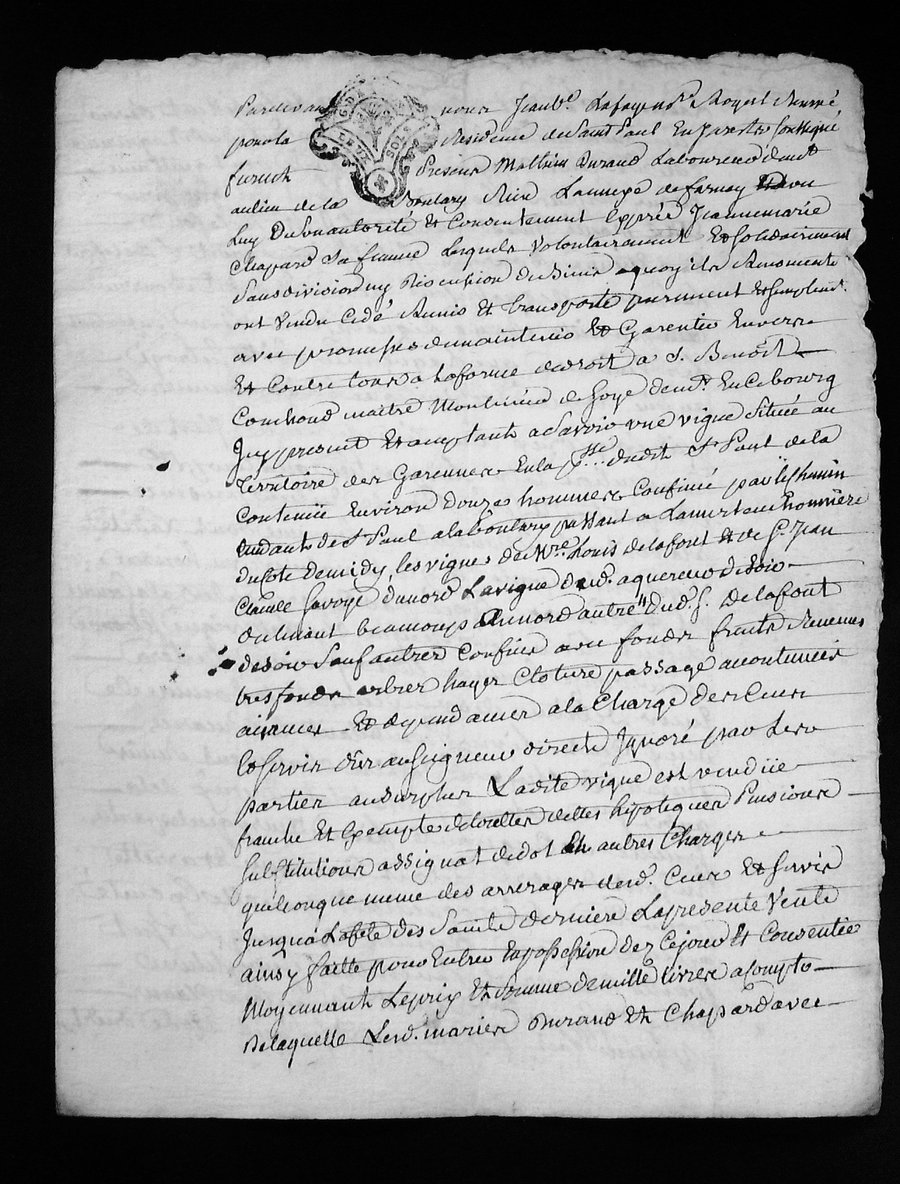 Pardevan nous Jeanbte. Lafay no.re Royal Reservé
pour la Residence de Saint Paul En Jarests soussigné
furent Presens Mathieu Durand Laboureur demt.
au lieu de la Boulary Rier Lannexe de farnay
Luy Duement autorité Et Consentement Exprés Jeannemarie
Chapard Sa femme Lesquels Volontairement Et solidairement
Sans division ny discussion de Biens aquoy ils Renoncent
ont Vendu Cedé Remis Et transporté purement Et simplemt.
avec promesses de maintenir Et Garentir Envers
Et Contre tous a la forme du droit a S. Benoît
Couchoud maitre Moulinier de soye demt. En ce bourg
Icy present Et acceptant a Savoir une vigne Située au
Territoire des Garennes En la psse. dudit St Paul de la
Contenüe Environ douze hommées Confinée par le chemin
tendant de St Paul a la boulary passant a
du Cote de midy, les vignes de Mre. Louis de la font & de Sr. Jean
Claude Savoye du nord La vigne dud. aquereur de soir
declinant beaucoup au nord autre dud. S. De la font
de soir Sauf autres Confins avec fonds fruits Revenus
tresfonds arbres hayes Cloture passage acoutumées
aisances Et dependances a la Charge des Cens
Et servis dûs au seigneur directe Ignoré par Les
parties au surplus Ladite vigne est vendüe
franche Et Exempte de toutes dettes hipoteques Pensions
substitutions assignat de dot Et autres Charges
quelconque meme des arrerages desd. Cens Et servis
Jusqu'a La fete des Saints derniere La presente Vente
ainsy faitte pour Entrer En possession dez Ce jour Et Consentie
Moyennant Le prix Et somme de mille livres a Compte
De laquelle Lesd. mariés Durand Et Chapard avec